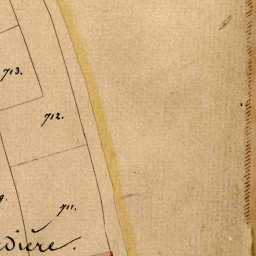 713.
712.
711.
9.
dière.